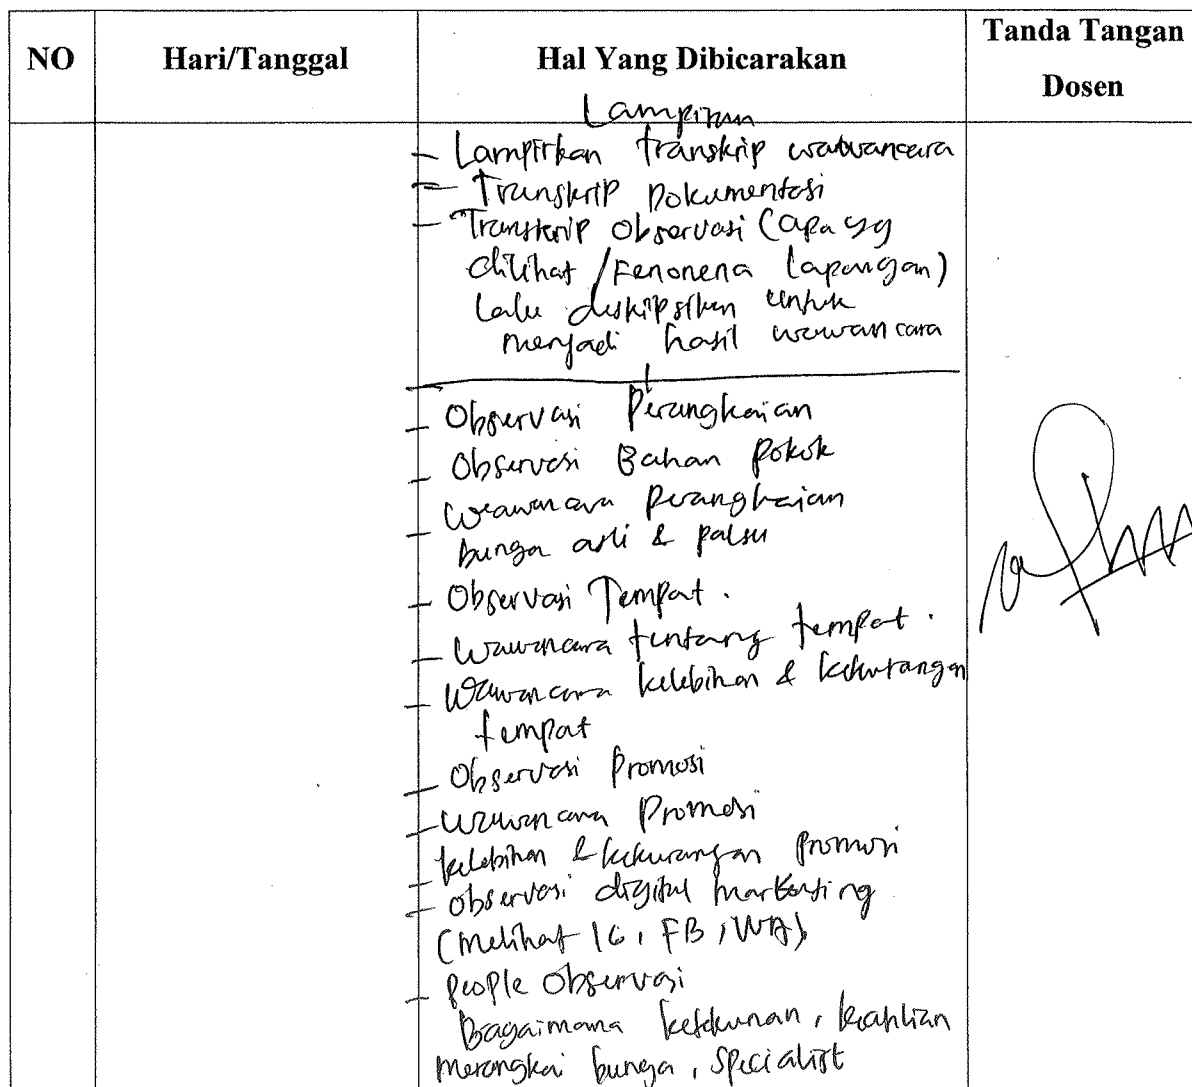 NO Hari/Tanggal Hal Yang Dibicarakan Tanda Tangan Dosen
Lampiran
- Lampirkan transkrip wawancara
- Transkrip Dokumentasi
- Transkrip Observasi (apa yg
dilihat / Fenonena lapangan)
lalu diskripsikan untuk
menjadi hasil wawancara
- Observasi Perangkaian
- Observasi Bahan Pokok
- Wawancara Perangkaian
bunga asli & palsu
- Observasi Tempat.
- Wawancara tentang tempat.
- Wawancara kelebihan & kekurangan
tempat
- Observasi Promosi
- Wawancara Promosi
- kelebihan & kekurangan promosi
- Observasi digital marketing
(Melihat IG, FB, WA)
- People Observasi
Bagaimana ketekunan, keahlian
merangkai bunga, specialist